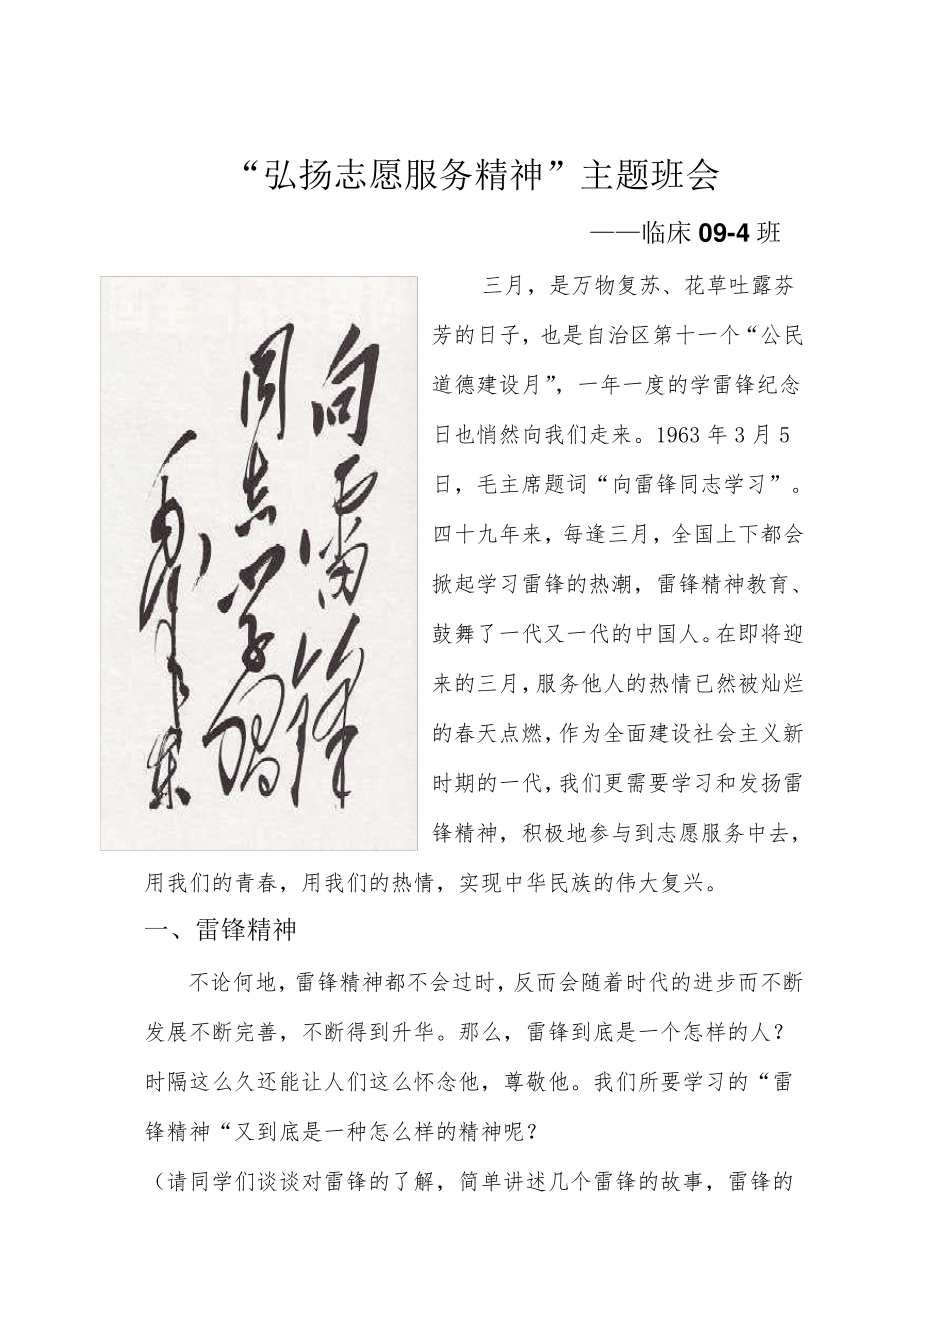 “弘扬志愿服务精神”主题班会
——临床 09-4 班
向雷锋
同志学习
毛泽东
三月，是万物复苏、花草吐露芬
芳的日子，也是自治区第十一个“公民
道德建设月”，一年一度的学雷锋纪念
日也悄然向我们走来。1963 年 3 月 5
日，毛主席题词“向雷锋同志学习”。
四十九年来，每逢三月，全国上下都会
掀起学习雷锋的热潮，雷锋精神教育、
鼓舞了一代又一代的中国人。在即将迎
来的三月，服务他人的热情已然被灿烂
的春天点燃，作为全面建设社会主义新
时期的一代，我们更需要学习和发扬雷
锋精神，积极地参与到志愿服务中去，
用我们的青春，用我们的热情，实现中华民族的伟大复兴。
一、雷锋精神
不论何地，雷锋精神都不会过时，反而会随着时代的进步而不断
发展不断完善，不断得到升华。那么，雷锋到底是一个怎样的人？
时隔这么久还能让人们这么怀念他，尊敬他。我们所要学习的“雷
锋精神“又到底是一种怎么样的精神呢？
（请同学们谈谈对雷锋的了解，简单讲述几个雷锋的故事，雷锋的